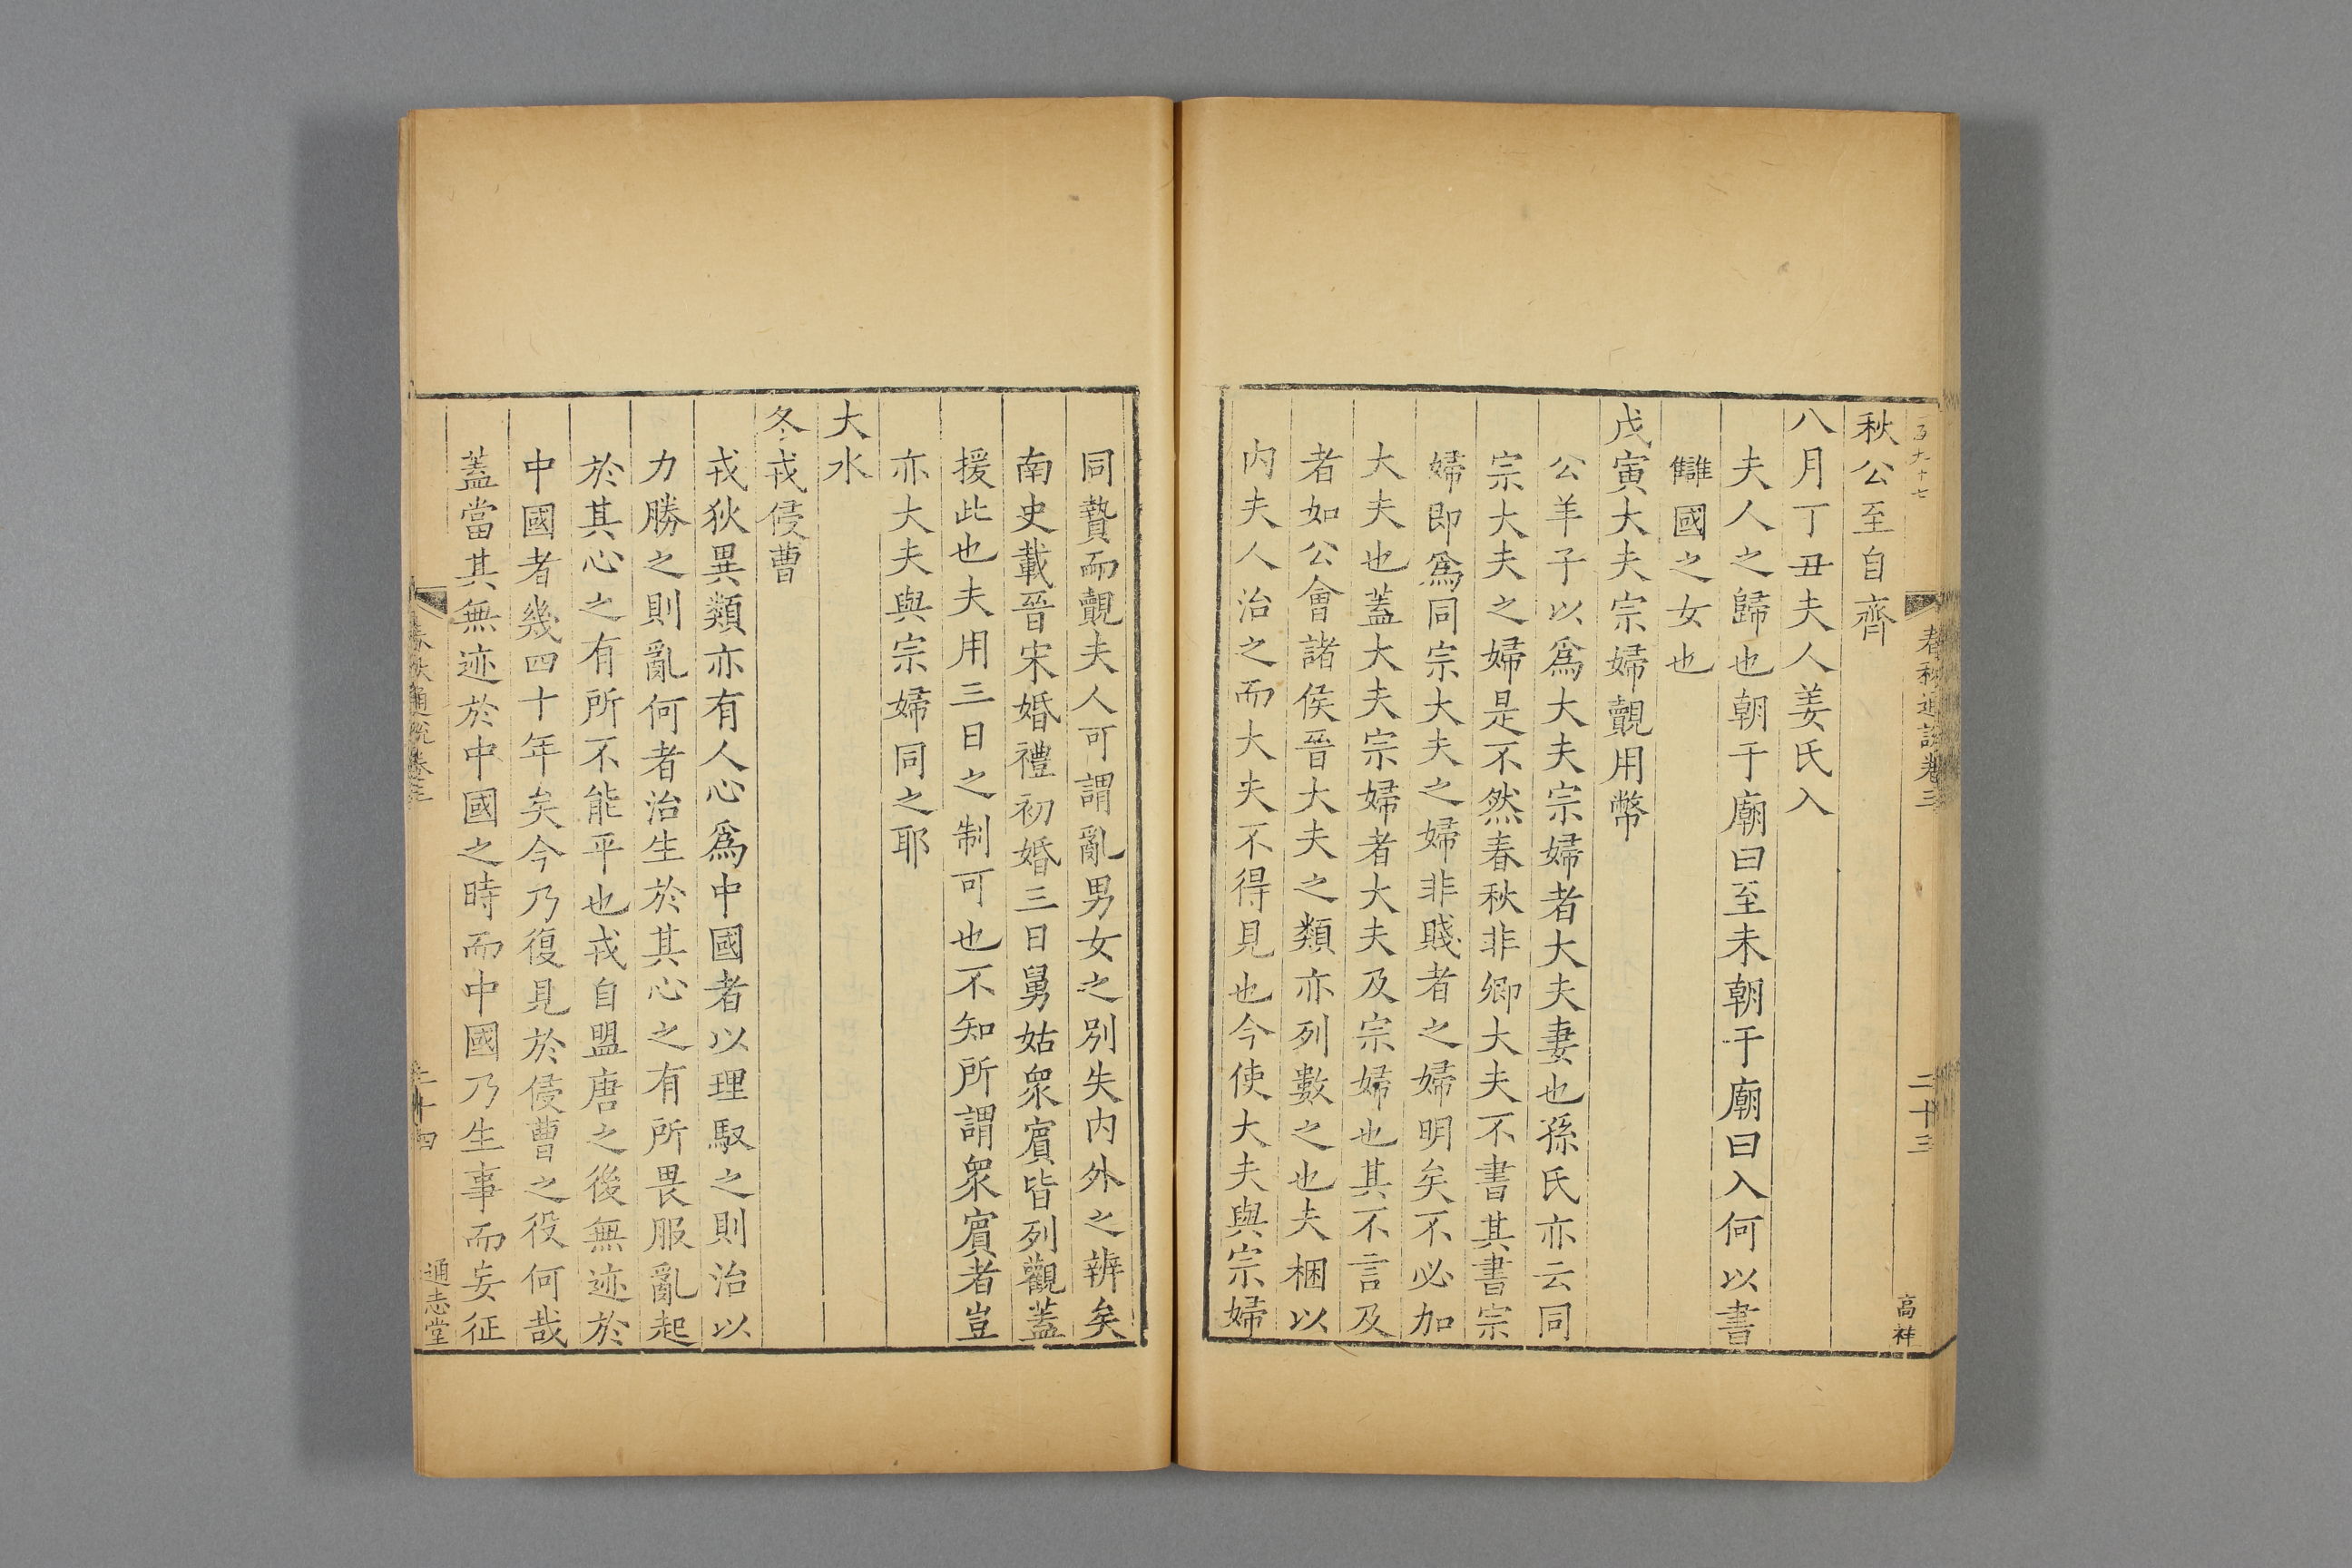 春秋通說卷三
二十三
高祥
秋公至自齊
八月丁丑夫人姜氏入
夫人之歸也朝于廟曰至未朝于廟曰入何以書
讎國之女也
戊寅大夫宗婦覿用幣
公羊子以爲大夫宗婦者大夫妻也孫氏亦云同
宗大夫之婦是不然春秋非卿大夫不書其書宗
婦即爲同宗大夫之婦非賤者之婦明矣不必加
大夫也蓋大夫宗婦者大夫及宗婦也其不言及
者如公會諸侯晉大夫之類亦列數之也夫梱以
内夫人治之而大夫不得見也今使大夫與宗婦
同贄而覿夫人可謂亂男女之别失内外之辨矣
南史載晉宋婚禮初婚三日舅姑衆賓皆列觀蓋
援此也夫用三日之制可也不知所謂衆賓者豈
亦大夫與宗婦同之耶
大水
冬戎侵曹
戎狄異類亦有人心爲中國者以理馭之則治以
力勝之則亂何者治生於其心之有所畏服亂起
於其心之有所不能平也戎自盟唐之後無迹於
中國者幾四十年矣今乃復見於侵曹之役何哉
蓋當其無迹於中國之時而中國乃生事而妄征
春秋通說卷三
二十四
通志堂